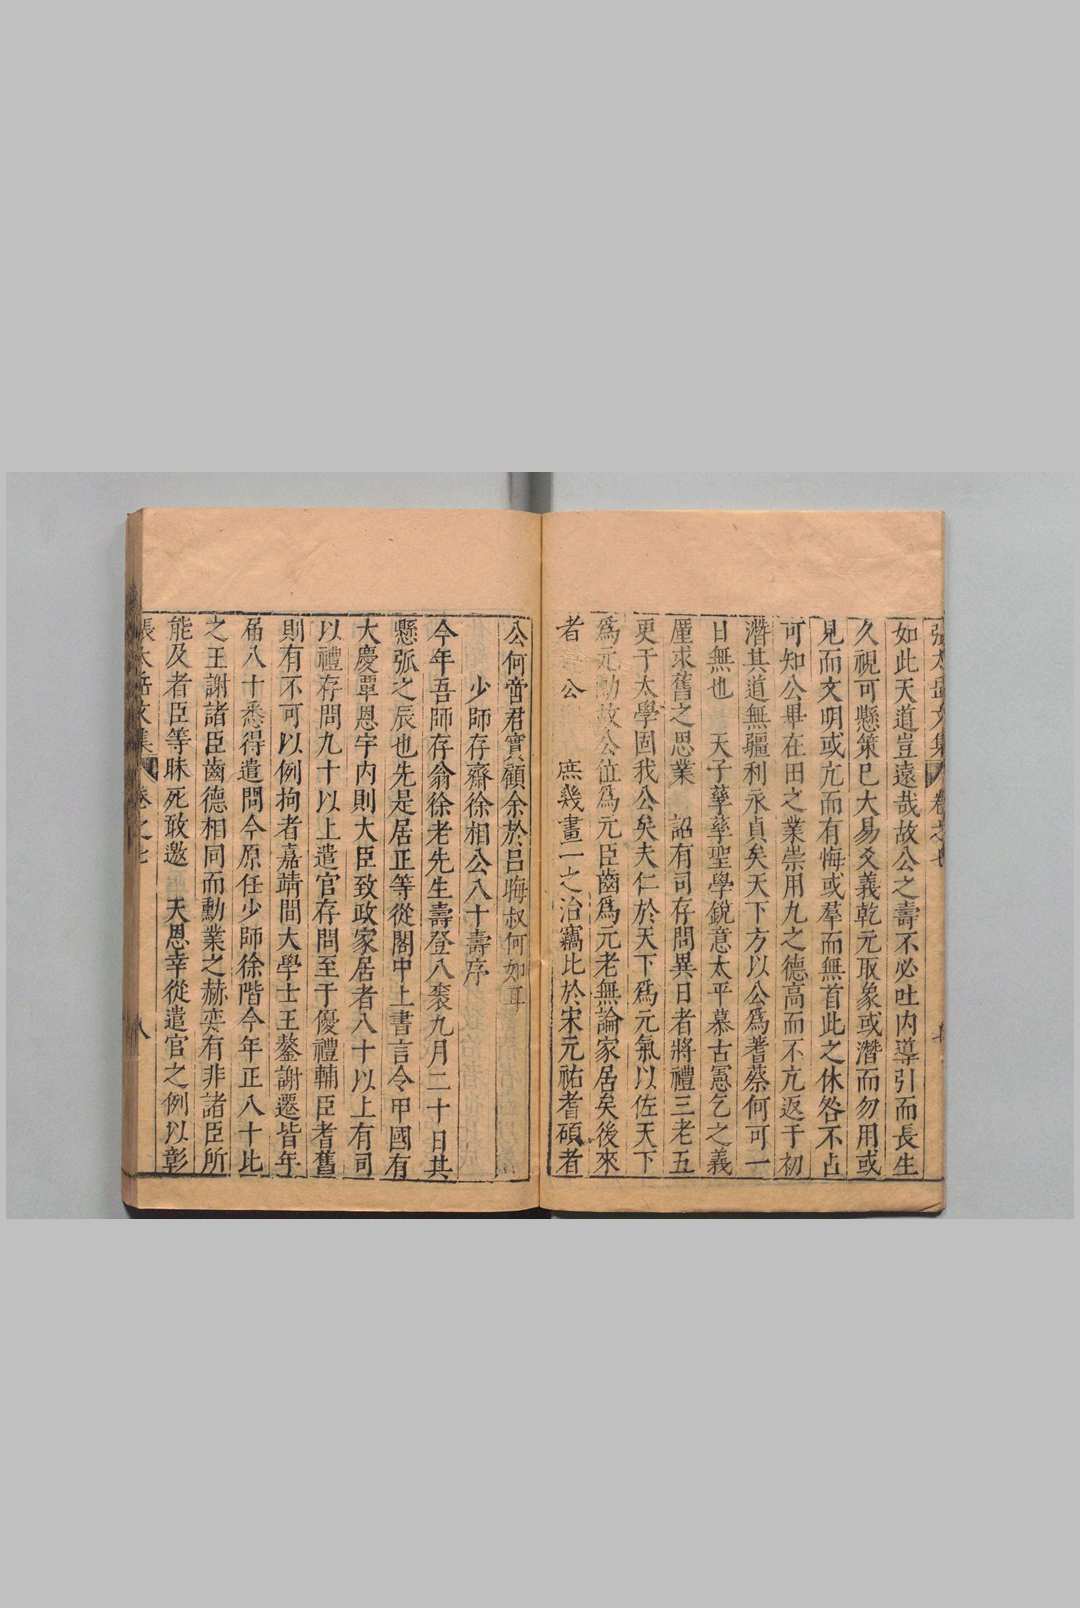 張太岳文集 卷之七
如此天道豈遠哉故公之壽不必吐内導引而長生
久視可懸策已大易爻義乾元取象或潛而勿用或
見而文明或亢而有悔或羣而無首此之休咎不占
可知公畢在田之業崇用九之德高而不亢返于初
潛其道無疆利永貞矣天下方以公爲蓍蔡何可一
日無也 天子孳孳聖學銳意太平慕古憲乞之義
厪求舊之思業 詔有司存問異日者將禮三老五
更于太學固我公矣夫仁於天下爲元氣以佐天下
爲元勳故公位爲元臣齒爲元老無論家居矣後來
者 公 庶幾畫一之治竊比於宋元祐耆碩者
公何啻君實顧余於呂晦叔何如耳
少師存齋徐相公八十壽序
今年吾師存翁徐老先生壽登八袠九月二十日其
懸弧之辰也先是居正等從閣中上書言令甲國有
大慶覃恩宇内則大臣致政家居者八十以上有司
以禮存問九十以上遣官存問至于優禮輔臣耆舊
則有不可以例拘者嘉靖間大學士王鏊謝遷皆年
屆八十悉得遣問今原任少師徐階今年正八十比
之王謝諸臣齒德相同而勳業之赫奕有非諸臣所
能及者臣等昧死敢邀 天恩幸從遣官之例以彰
張太岳文集 卷之七 八